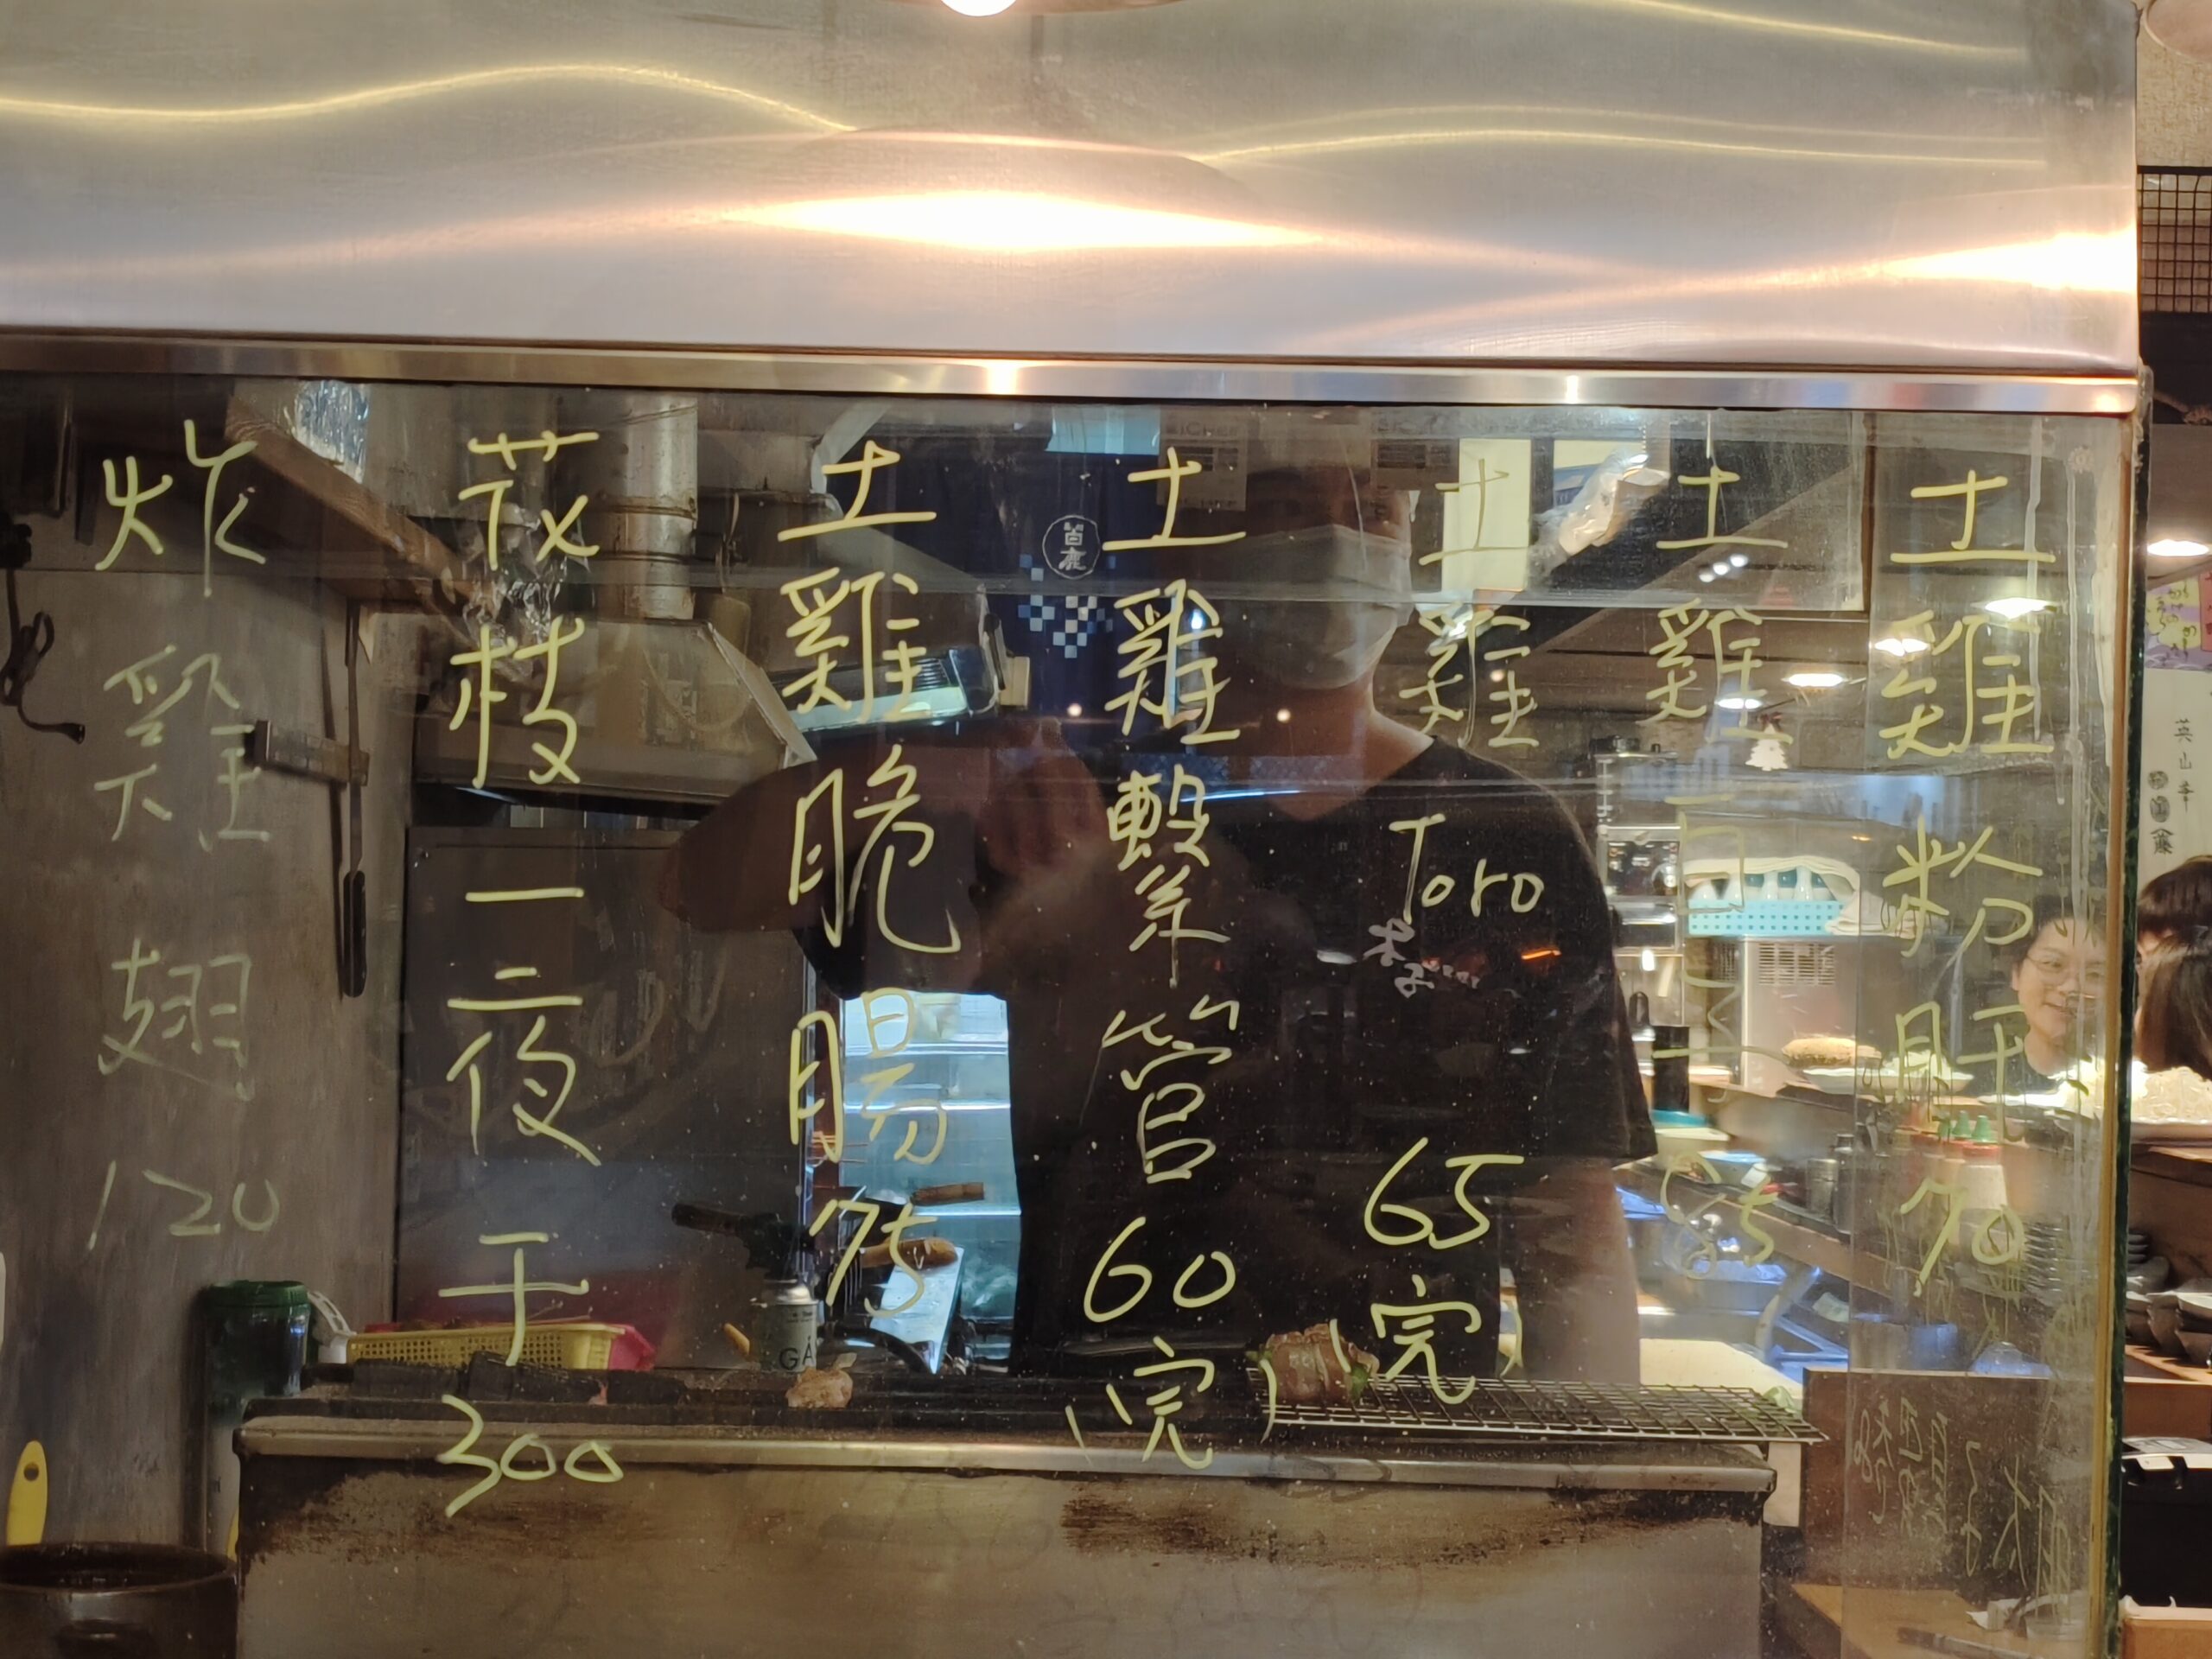 土雞粉肝 70
土雞
土雞 Toro 65 (完)
土雞繫管 60 (完)
土雞脆腸 75
花枝一夜干 300
炸雞翅 120